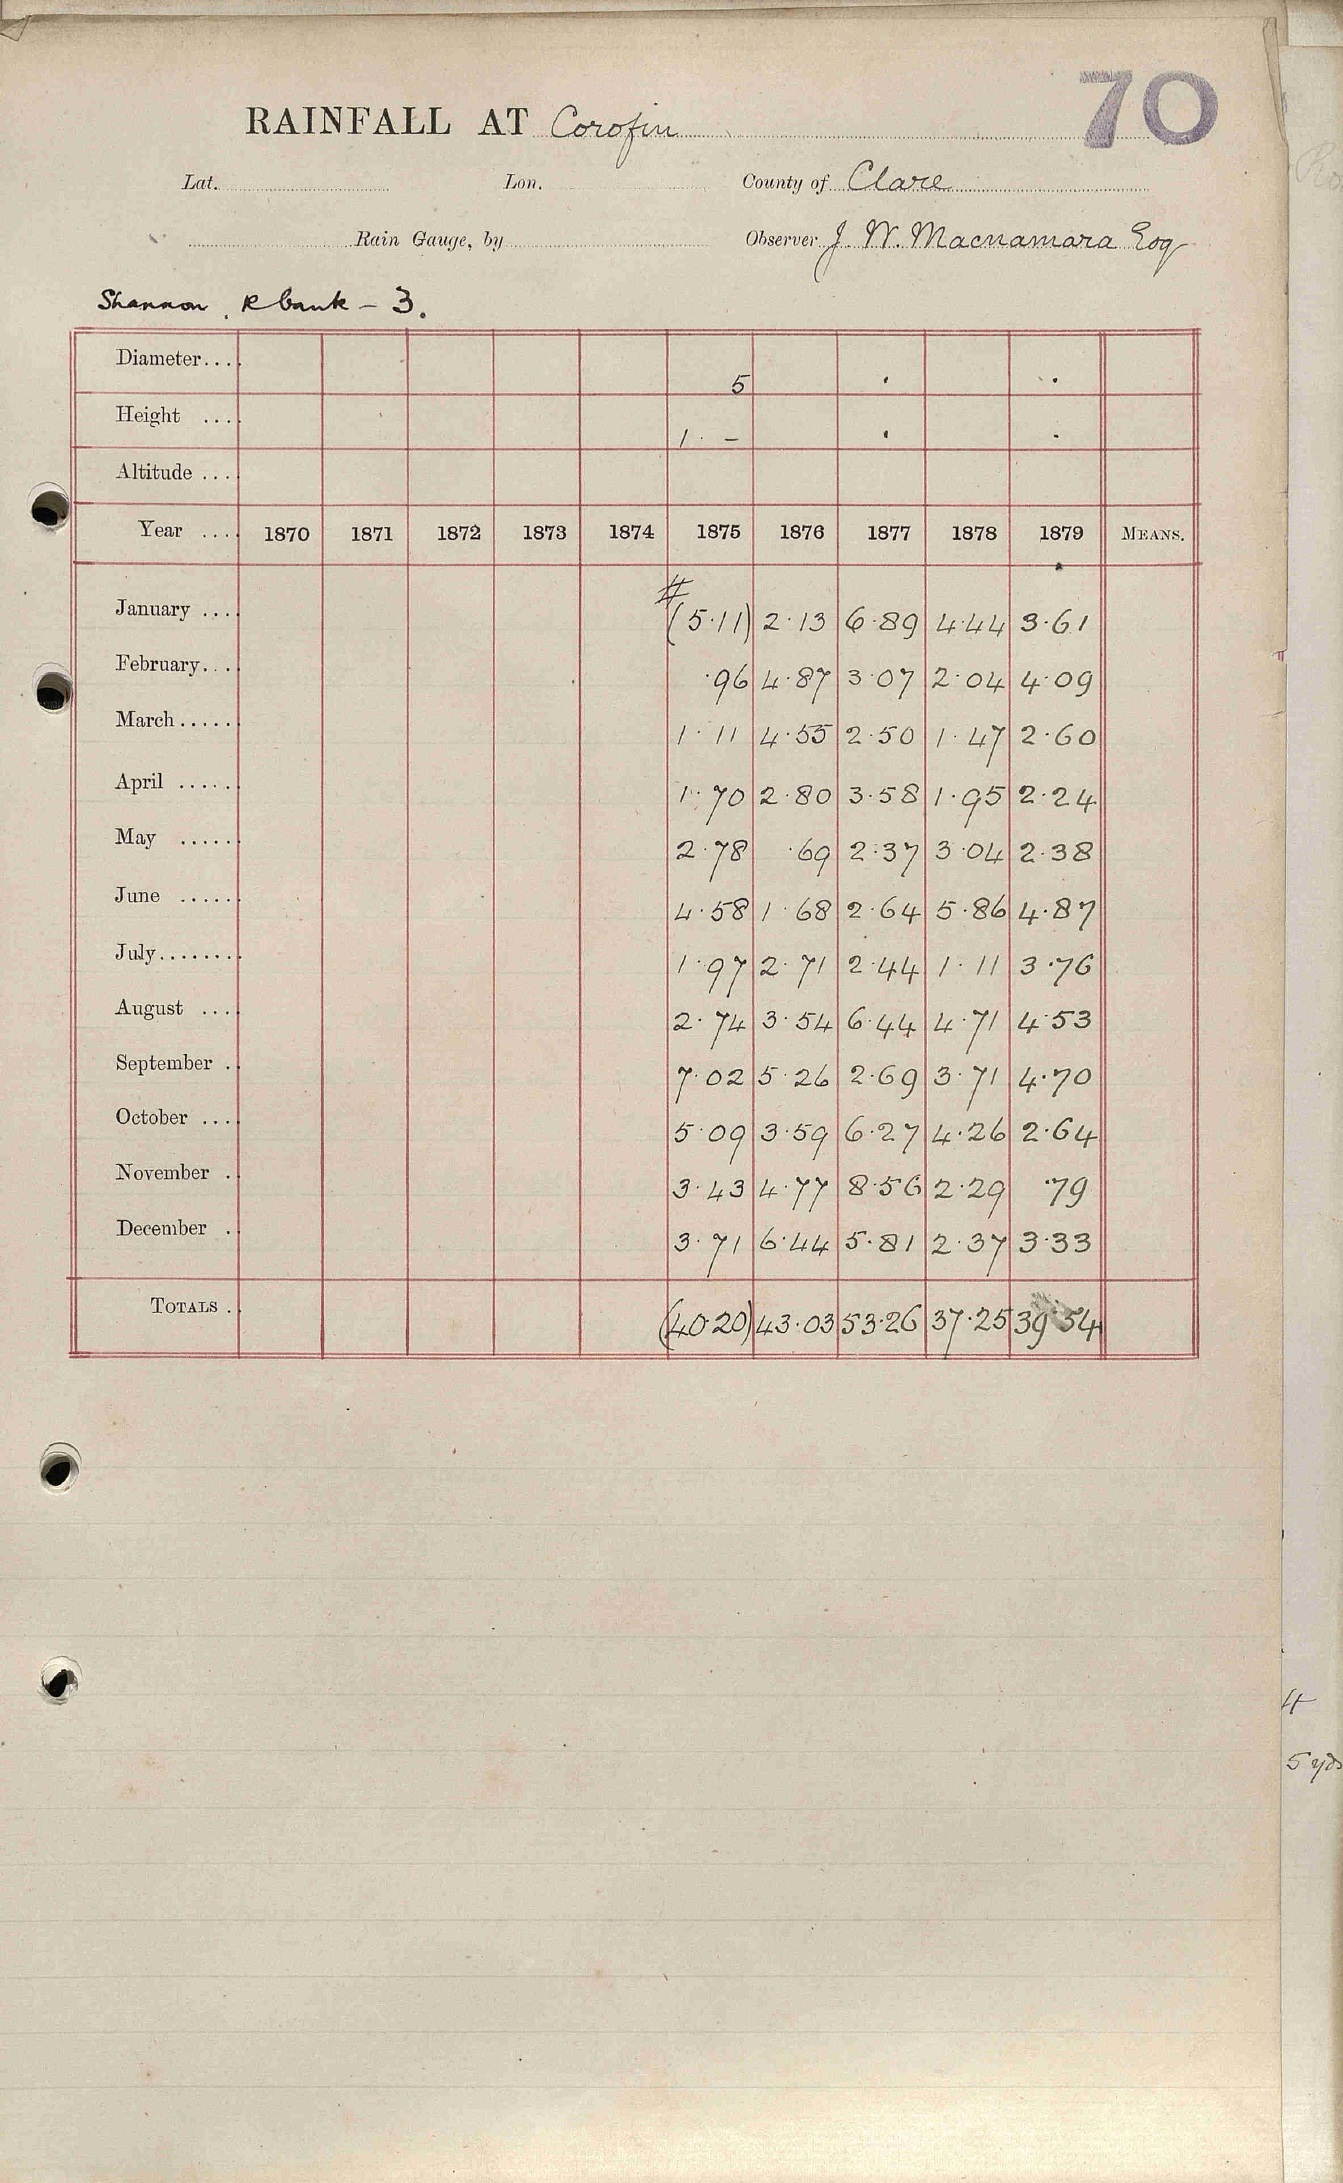 70
RAINFALL AT Corofin
Lat. Lon. County of Clare
Rain Gauge, by Observer J. W. Macnamara Esq
Shannon. R bank - 3.
Diameter.... 5 · ·
Height .... 1 · - · ·
Altitude ....
Year .... 1870 1871 1872 1873 1874 1875 1876 1877 1878 1879 MEANS.
#
January .... (5·11) 2·13 6·89 4·44 3·61
February.... ·96 4·87 3·07 2·04 4·09
March...... 1·11 4·55 2·50 1·47 2·60
April ...... 1·70 2·80 3·58 1·95 2·24
May ...... 2·78 ·69 2·37 3·04 2·38
June ...... 4·58 1·68 2·64 5·86 4·87
July........ 1·97 2·71 2·44 1·11 3·76
August .... 2·74 3·54 6·44 4·71 4·53
September .. 7·02 5·26 2·69 3·71 4·70
October .... 5·09 3·59 6·27 4·26 2·64
November .. 3·43 4·77 8·56 2·29 ·79
December .. 3·71 6·44 5·81 2·37 3·33
TOTALS .. (40·20) 43·03 53·26 37·25 39·54
4
5 yds